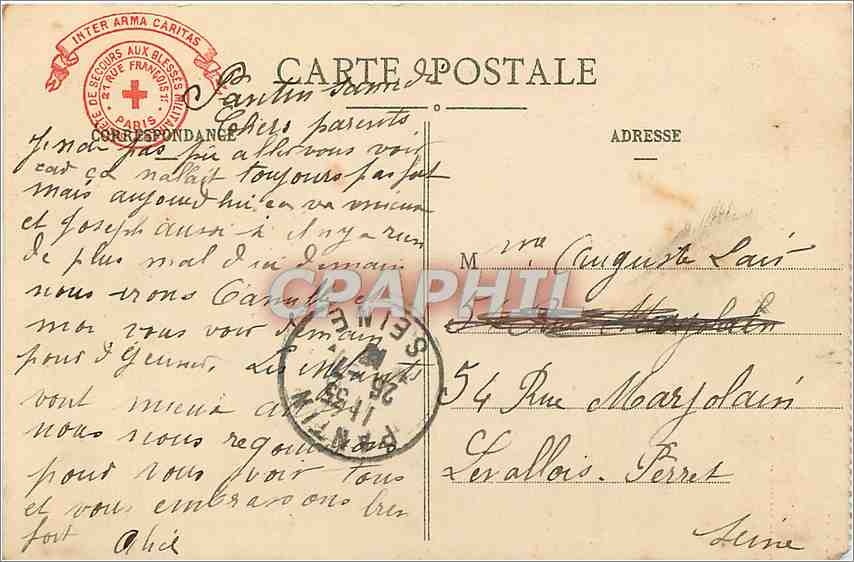 INTER ARMA CARITAS
SOCIETE DE SECOURS AUX BLESSES MILITAIRES
21 RUE FRANÇOIS 1er
PARIS
CARTE POSTALE
CORRESPONDANCE
ADRESSE
Pantin samedi
Chers parents
Je n'ai pas pu aller vous voir
car ça nallait toujours pas fort
mais aujourd hui ça va mieux
et Joseph aussi s il ny a rien
de plus mal d ici demain
nous irons Camille et
moi vous voir demain
pour déjeuner. Les
vont mieux
nous nous rejouissons
pour vous voir tous
et vous embrassons bien
fort
M me Auguste
54 Rue Marjolain
54 Rue Marjolain
Levallois-Perret
Seine
PANTIN
SEINE
11 35
25
CPAPHIL